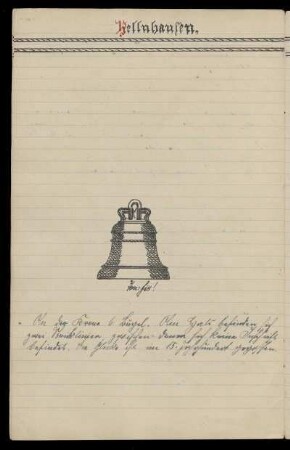 Hellnhausen.
An der Krone 6 Bügel. Am Hals befinden sich
zwei Kordelinien, zwischen denen sich keine Inschrift
befindet. Die Glocke ist im 15. Jahrhundert gegossen.